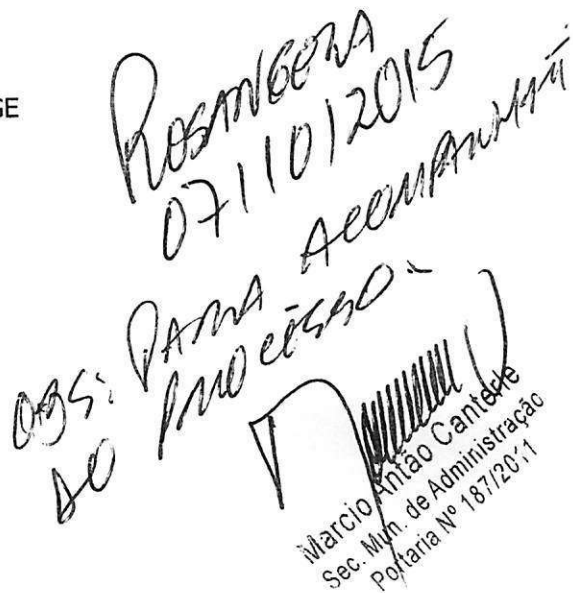 GE
ROSANGELA
07/10/2015
OBS: PARA ACOMPANHAR
DO PROCESSO.
Marcio Antão Canterle
Sec. Mun. de Administração
Portaria Nº 187/2011